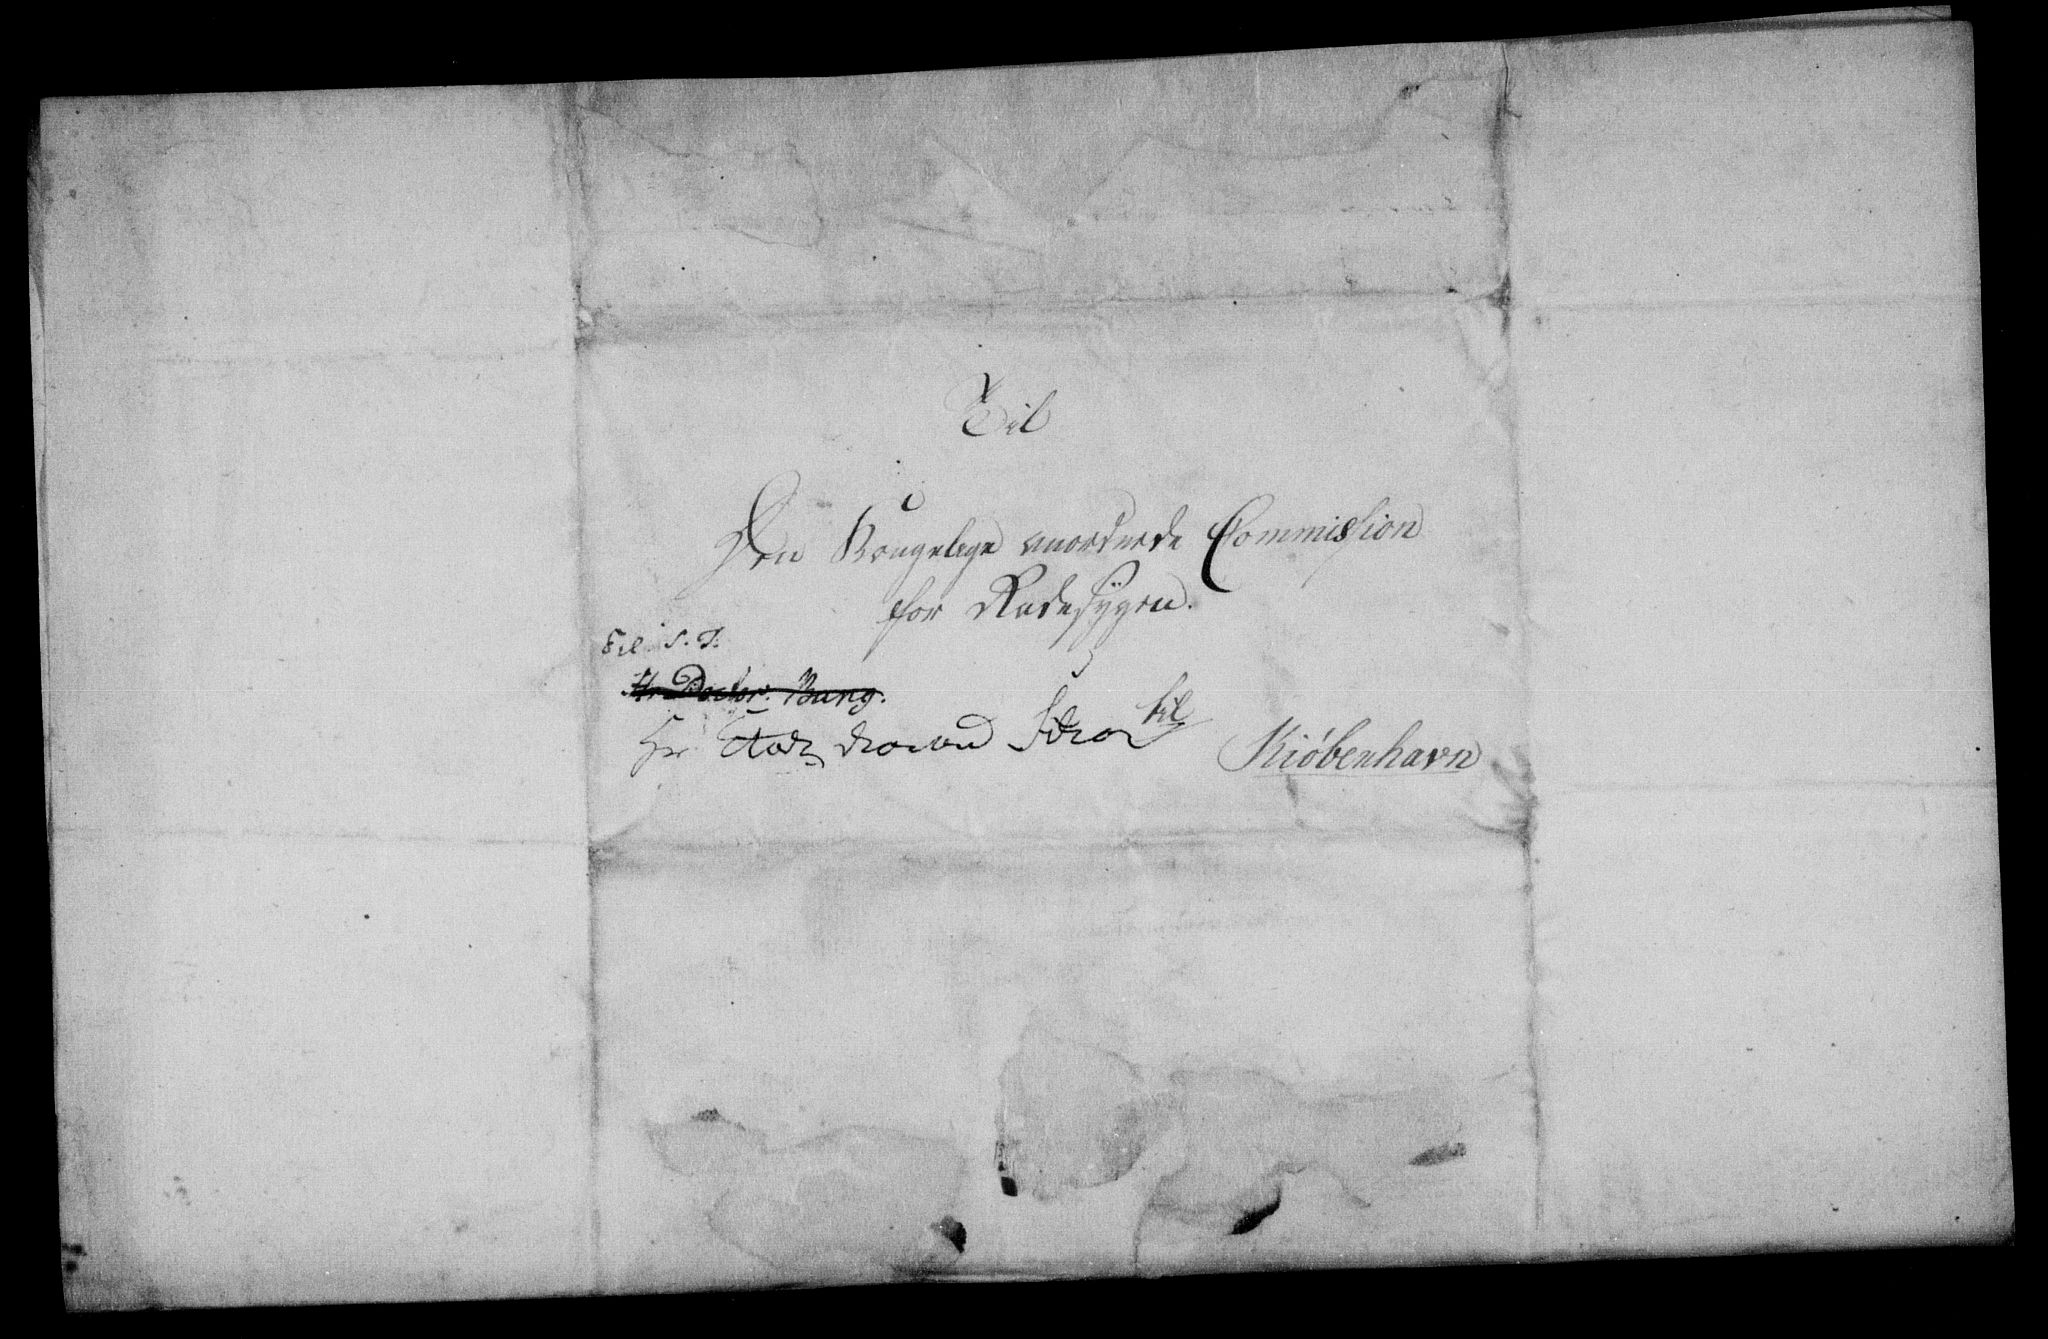 Til
Den Kongelige anordnede Commission
for Radesygen.
Til S. T.
Hr Doctor Bang.
Hr Etats
til
Kiöbenhavn